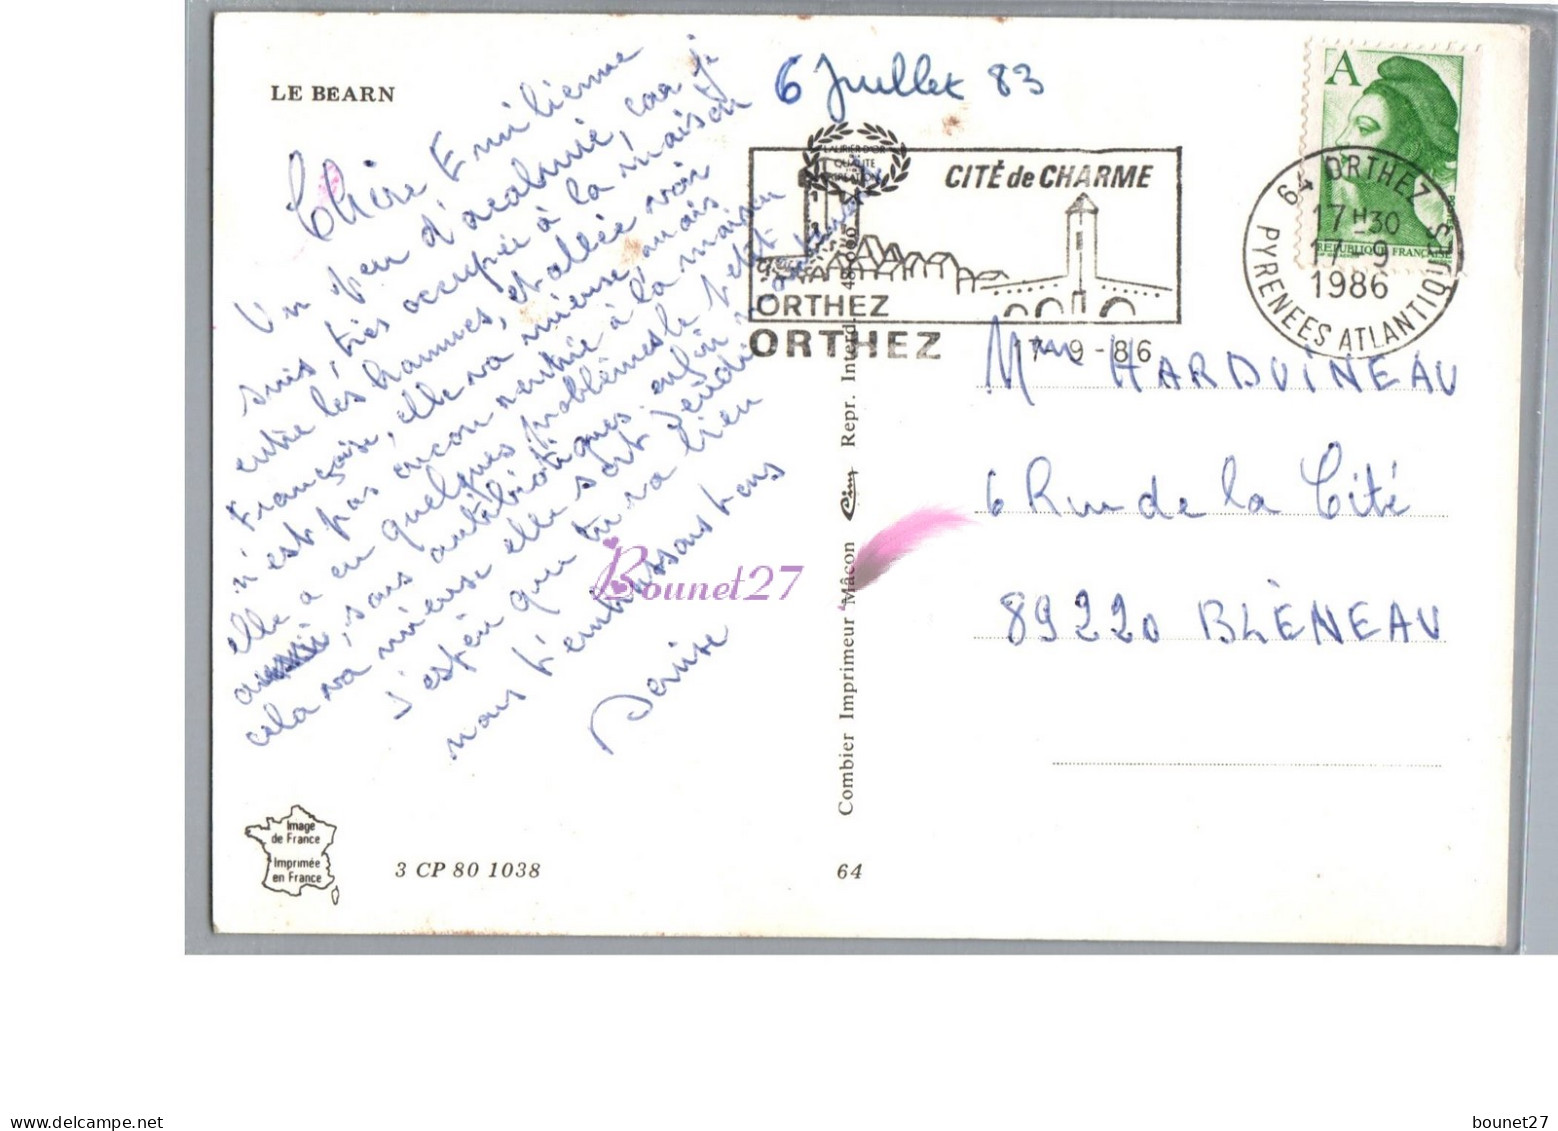 LE BEARN
6 Juillet 83
Chère Emilienne
Un peu d'acalmie, car je
suis, très occupée à la maison
entre les hommes, et allée voir
Françoise, elle va mieux mais
n'est pas encore rentrée à la maison
elle a eu quelques problèmes le petit
aussi, sous antibiotiques enfin
cela va mieux elle sort Jeudi
J'espère que tu va bien
nous t'embrassons tous
Denise
LAURIER D'OR
QUALITÉ
CITÉ de CHARME
ORTHEZ
ORTHEZ
17-9-86
A
REPUBLIQUE FRANÇAISE
64 ORTHEZ
17H30
17-9
1986
PYRENEES ATLANTIQUES
Mme HARDUINEAU
6 Rue de la Cité
89220 BLÉNEAU
Combier Imprimeur Mâcon Cim Repr. Interd. 48
Bounet27
Image
de France
Imprimée
en France
3 CP 80 1038
64
www.delcampe.net
bounet27